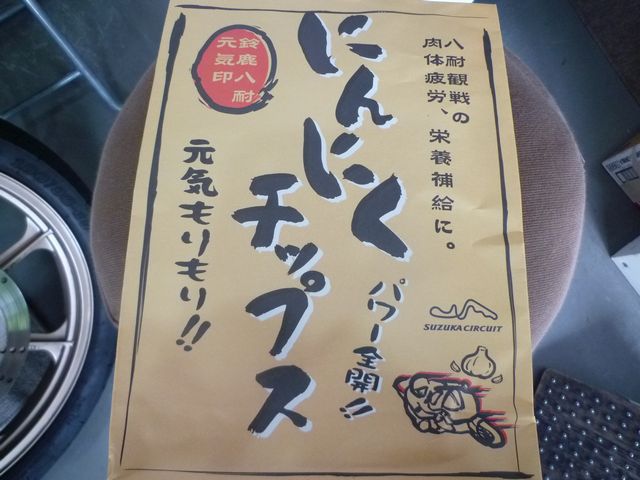 八耐観戦の
肉体疲労、栄養補給に。
にんにく
チップス
パワー全開!!
鈴鹿八耐
元気印
元気もりもり!!
SUZUKA CIRCUIT